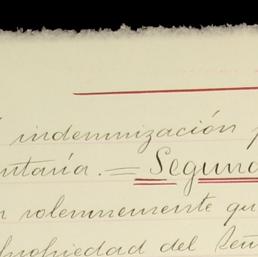 indemnización
entaria. = Segund
solemnemente qu
propiedad del Señ